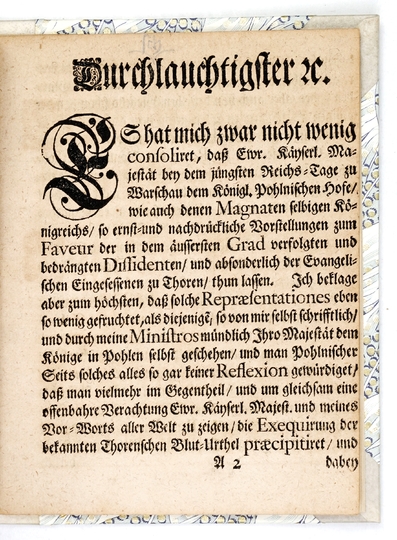 Durchlauchtigster ꝛc.
ES hat mich zwar nicht wenig
consoliret, daß Ewr. Käyserl. Ma-
jestät bey dem jüngsten Reichs-Tage zu
Warschau dem Königl. Pohlnischen Hofe/
wie auch denen Magnaten selbigen Kö-
nigreichs/ so ernst-und nachdrückliche Vorstellungen zum
Faveur der in dem äussersten Grad verfolgten und
bedrängten Dissidenten/ und absonderlich der Evangeli-
schen Eingesessenen zu Thoren/ thum lassen. Ich beklage
aber zum höchsten, daß solche Repræsentationes eben
so wenig gefruchtet, als diejenige, so von mir selbst schrifftlich/
und durch meine Ministros mündlich Ihro Majestät dem
Könige in Pohlen selbst geschehen/ und man Pohlnischer
Seits solches alles so gar keiner Reflexion gewürdiget/
daß man vielmehr im Gegentheil/ und um gleichsam eine
offenbahre Verachtung Ewr. Käyserl. Majest. und meines
Vor-Worts aller Welt zu zeigen/ die Exequirung der
bekannten Thorenschen Blut-Urthel præcipitiret/ und
A 2 dabey